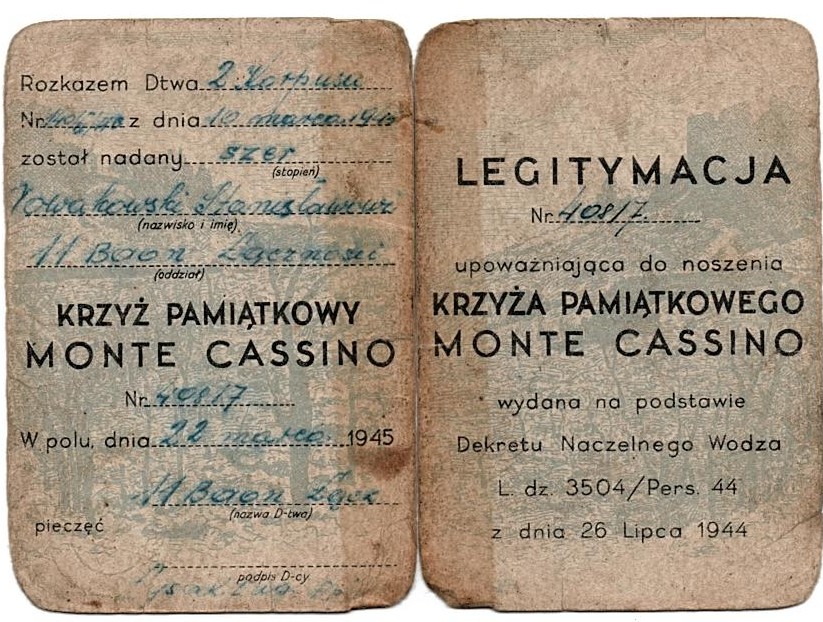 Rozkazem Dtwa 2 Korpusu
Nr z dnia 10 marca 1945
został nadany szer
(stopień)
Nowakowski Stanisław
(nazwisko i imię)
11 Baon Łączności
(oddział)
KRZYŻ PAMIĄTKOWY
MONTE CASSINO
Nr 40817
W polu, dnia 22 marca 1945
11 Baon Łącz
(nazwa D-twa)
pieczęć
podpis D-cy
LEGITYMACJA
Nr 40817.
upoważniająca do noszenia
KRZYŻA PAMIĄTKOWEGO
MONTE CASSINO
wydana na podstawie
Dekretu Naczelnego Wodza
L. dz. 3504/Pers. 44
z dnia 26 Lipca 1944